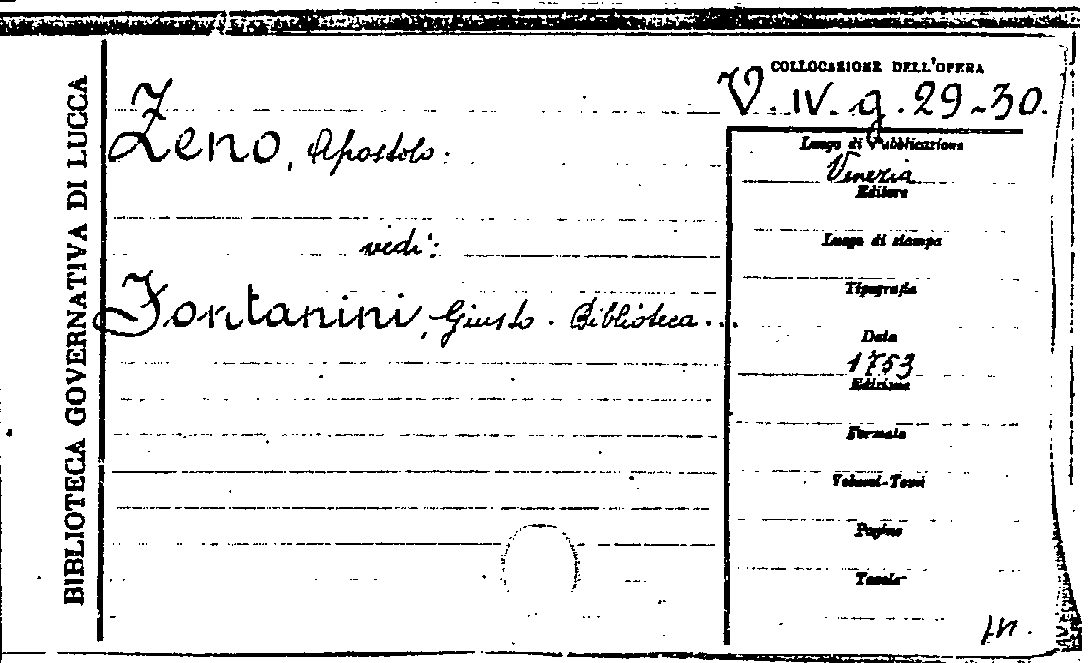 BIBLIOTECA GOVERNATIVA DI LUCCA
Zeno, Apostolo.
vedi:
Fontanini, Giusto. Biblioteca...
COLLOCAZIONE DELL'OPERA
V. IV. g. 29-30.
Luogo di Pubblicazione
Venezia
Editore
Luogo di stampa
Tipografia
Data
1753
Edizione
Formato
Volumi-Tomi
Pagine
Tavole